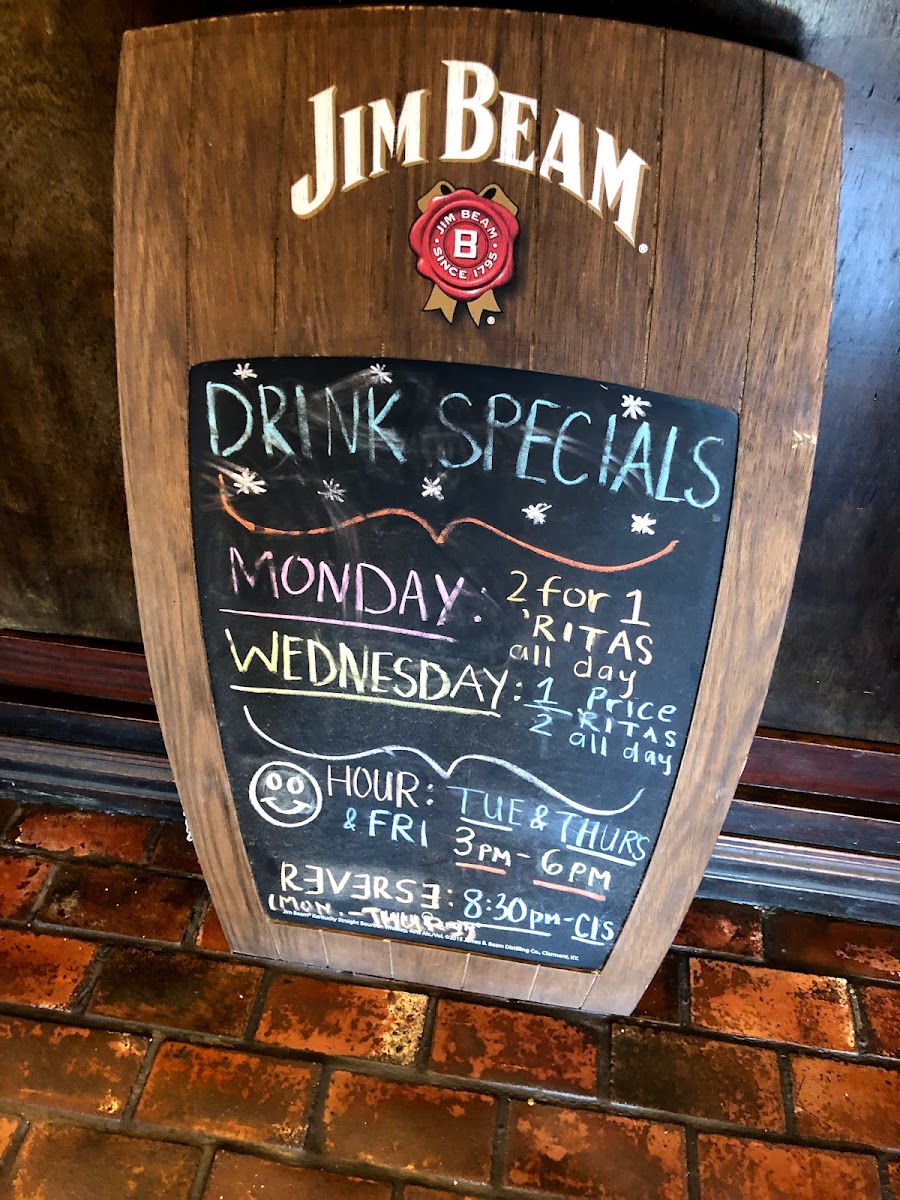 JIM BEAM
JIM BEAM
B
SINCE 1795
DRINK SPECIALS
MONDAY: 2 for 1
'RITAS
all day
WEDNESDAY: 1/2 Price
RITAS
all day
HOUR: TUE & THURS
& FRI 3PM - 6PM
REVERSE: 8:30pm - Cls
(MON. - Thursday)
Jim Beam® Kentucky Straight Bourbon Whiskey, 40% Alc./Vol. ©2015 James B. Beam Distilling Co., Clermont, KY.